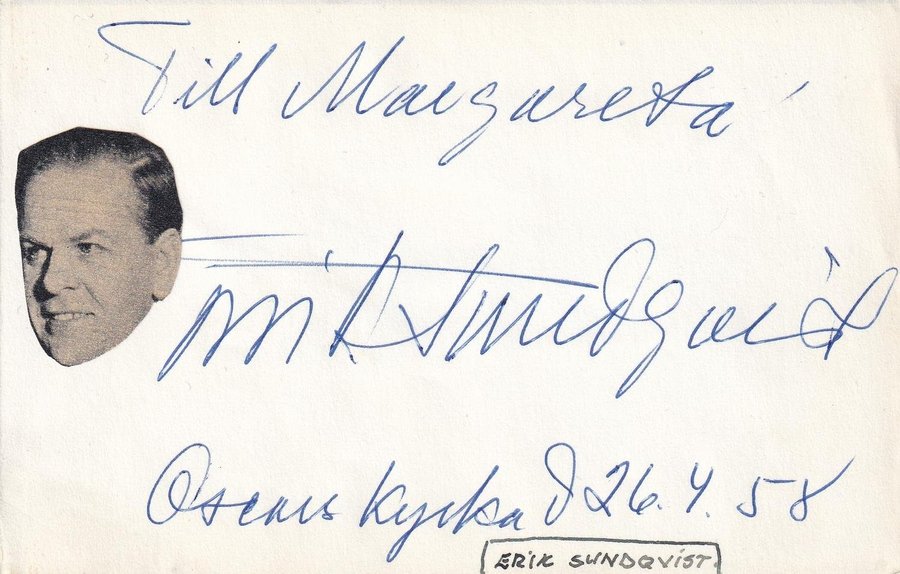 Till Margareta
Erik Sundqvist
Oscars Kyrka d 26.4.58
ERIK SUNDQVIST.